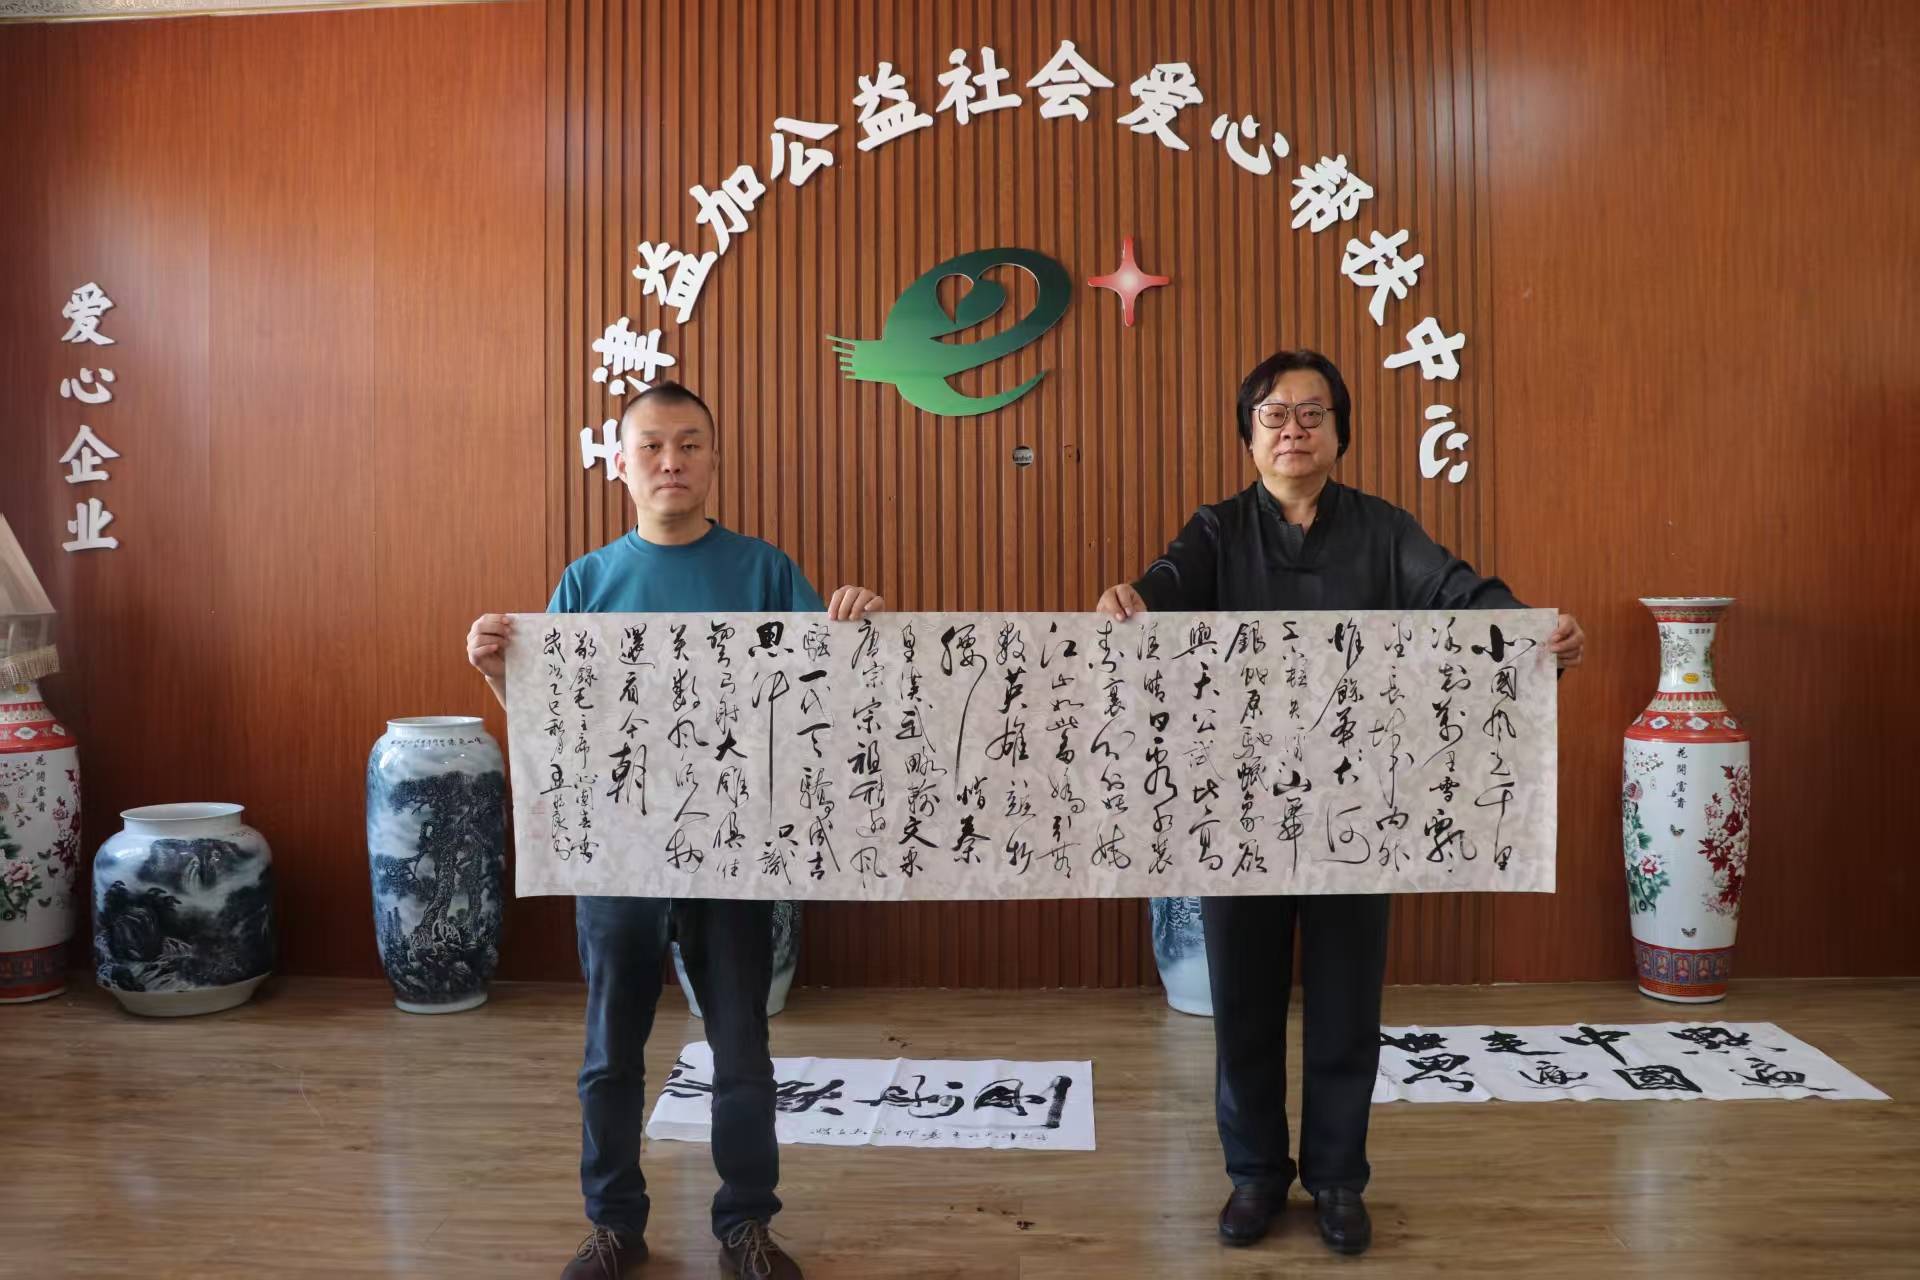 天津益加公益社会爱心帮扶中心
爱心企业
北國風光千里
冰封萬里雪飄
望長城內外
惟餘莽莽大河
上下頓失滔滔山舞
銀蛇原馳蠟象欲
與天公試比高
須晴日看紅裝
素裹分外妖嬈
江山如此多嬌引無
數英雄競折
腰惜秦
皇漢武略輸文采
唐宗宋祖稍遜風
騷一代天驕成吉
思汗只識
彎弓射大雕俱往
矣數風流人物
還看今朝
敬錄毛主席沁園春雪
歲次乙巳秋月王
花開富貴
花開富貴
中國
走遍
世界